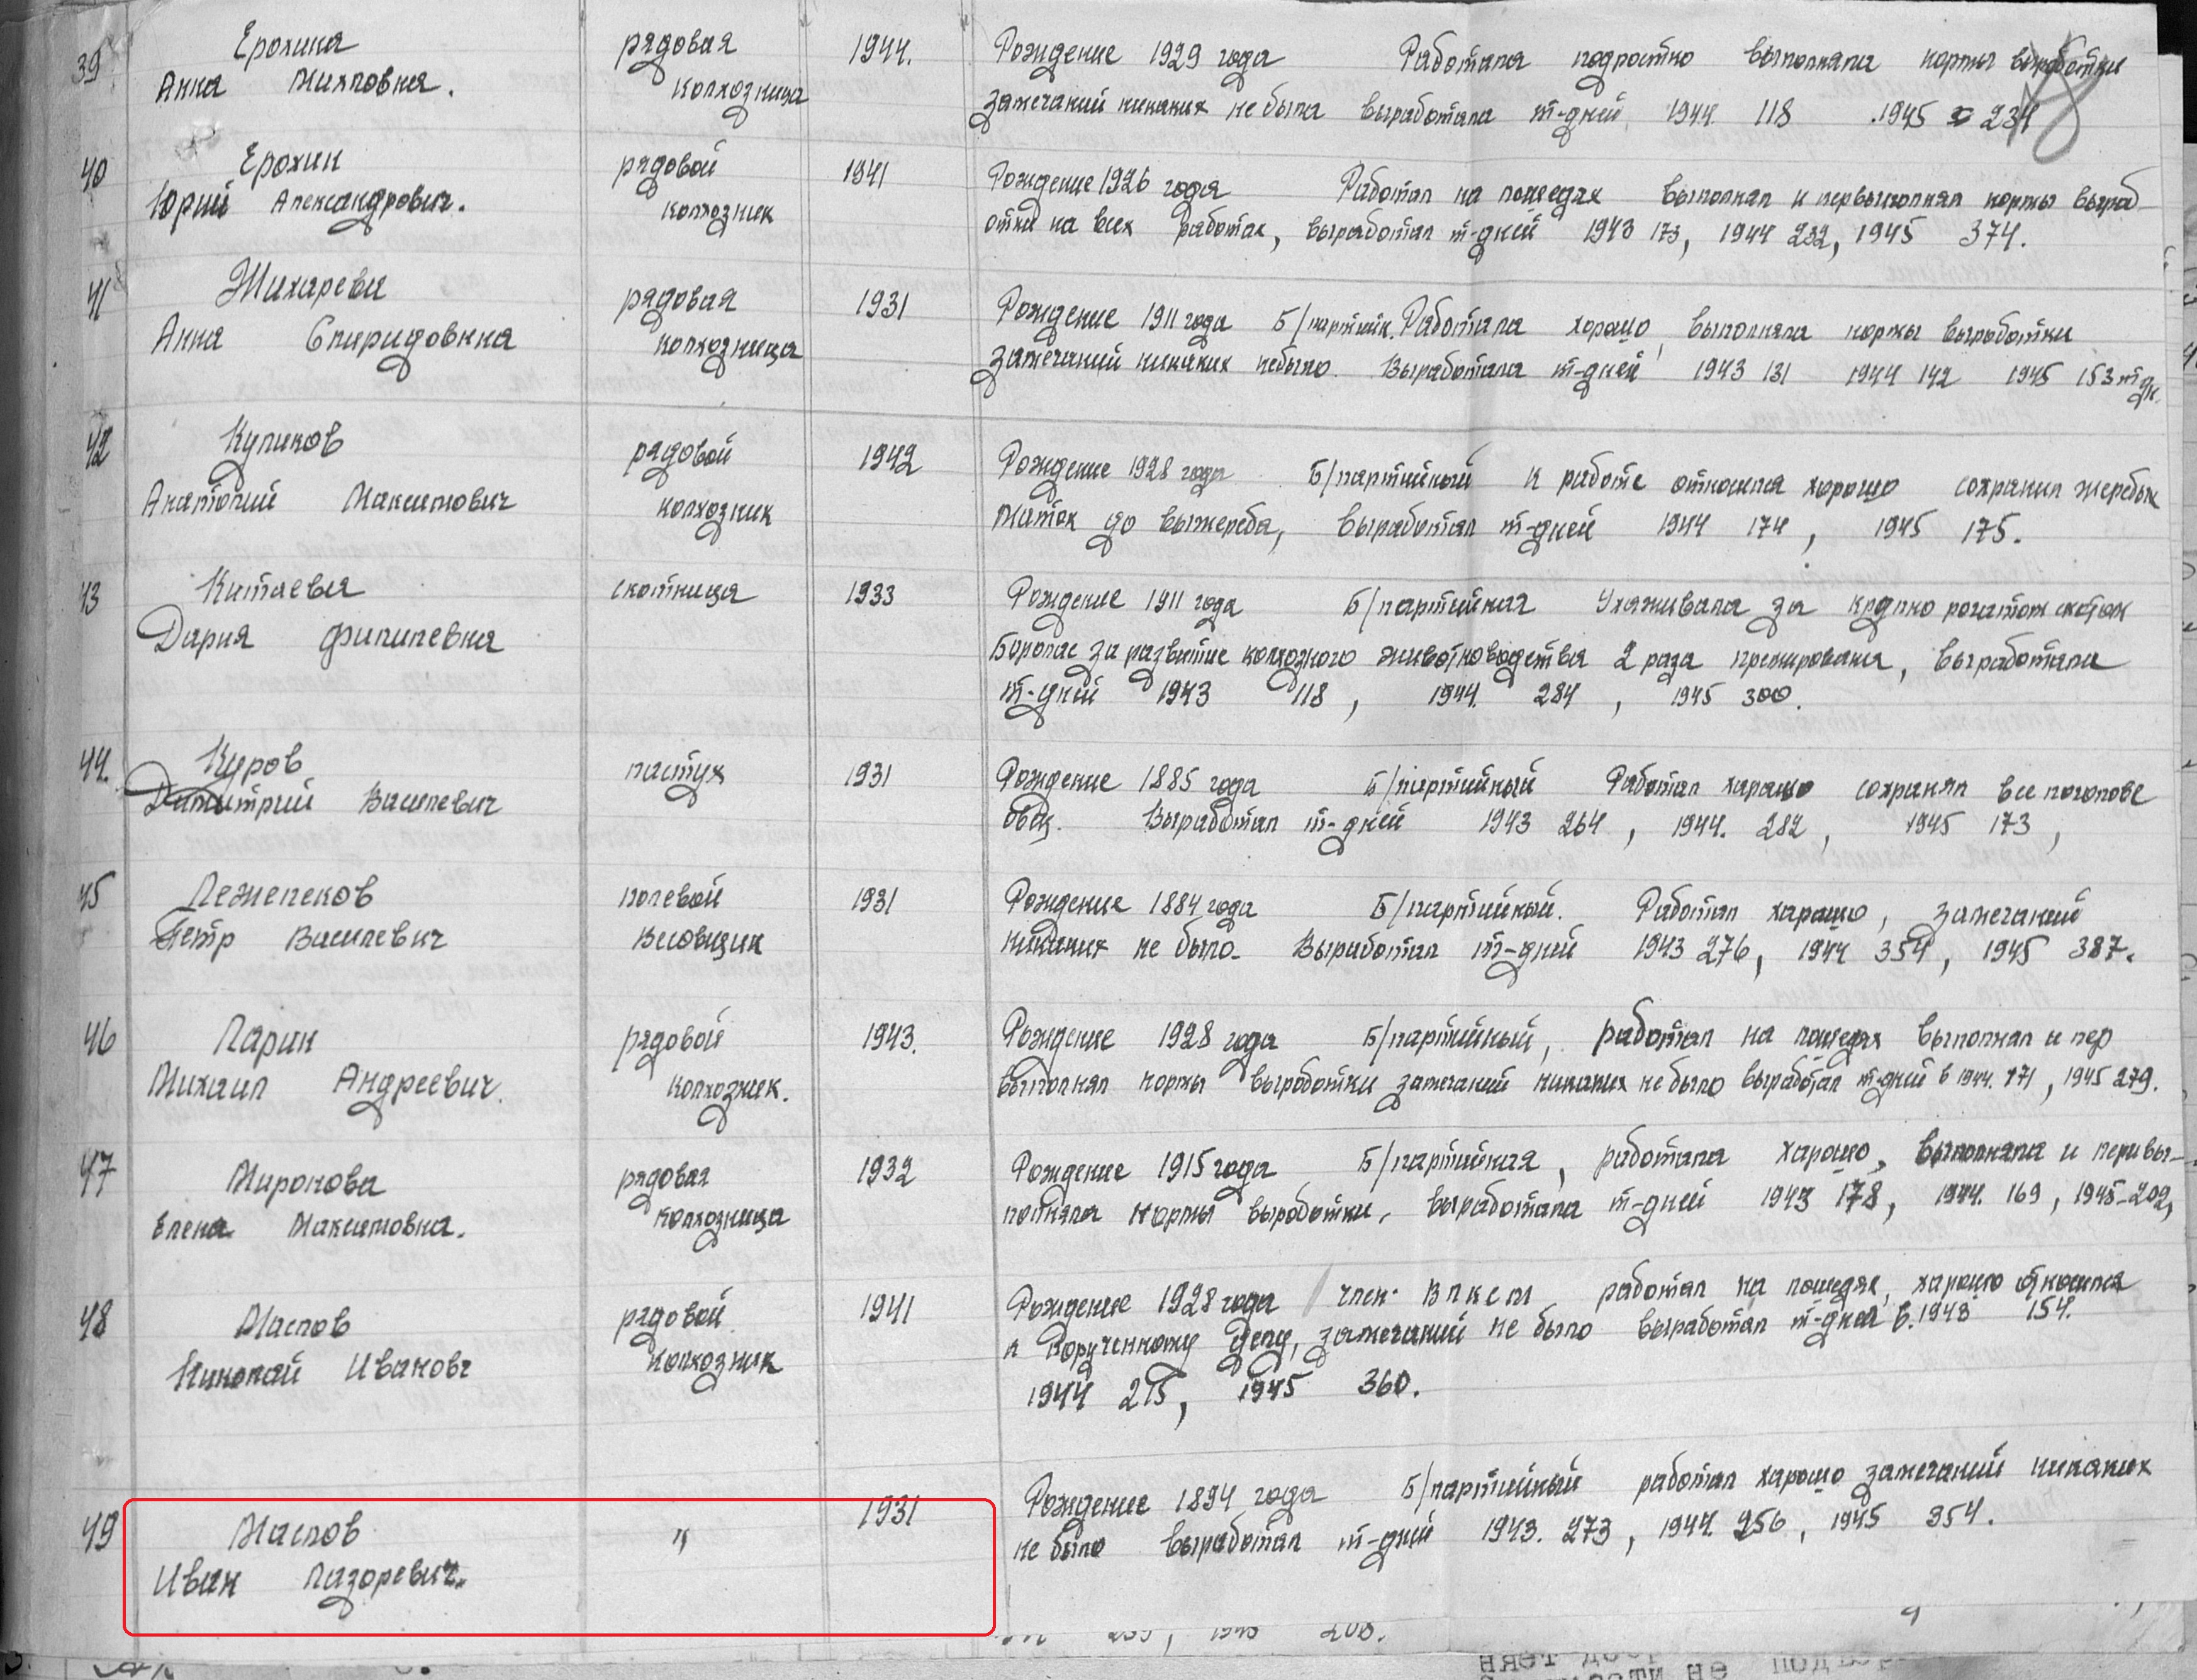 39 Ерохина рядовая 1944. Рождение 1929 года Работала подростко выполняла нормы выработки
Анна колхозница замечаний никаких не была выработала т-дней 1944 118 .1945 234
40 Ерохин рядовой 1941 Рождение 1926 года Работал на лошедях выполнял и первыполнял нормы выраб
Юрий Александрович. колхозник отки на всех работах, выработал т-дней 1943 173, 1944 232, 1945 374.
41 Жихарева рядовая 1931 Рождение 1911 года Б/партийн. Работала хорошо, выполняла нормы выработки
Анна Спиридовна колхозница замечаний никаких небыло. Выработала т-дней 1943 131 1944 142 1945 153 т дн.
42 Куликов рядовой 1942 Рождение 1928 года Б/партийный к работе относился хорошо сохранил жеребых
Анатолий Максимович колхозник маток до выжереба, выработал т-дней 1944 174, 1945 175.
43 Китаева скотница 1933 Рождение 1911 года Б/партийная Ухаживала за крупно рогатом скотом
Дария Филипевна Боролас за развитие колхозного животноводства 2 раза премирована, выработала
т-дней 1943 118, 1944. 284, 1945 300.
44. Куров пастух 1931 Рождение 1885 года Б/партийный Работал харашо сохранял все поголове
Димитрий Василевич овец. Выработал т-дней 1943 264, 1944. 282, 1945 173,
45 Лежепеков полевой 1931 Рождение 1884 года Б/партийный. Работал харашо, замечаний
Петр Василевич весовщик никаких не было. Выработал т-дней 1943 276, 1944 354, 1945 387.
46 Ларин рядовой 1943. Рождение 1928 года Б/партийный, работал на лошедях выполнял и пер
Михаил Андреевич. колхозник. выполнял нормы выработки замечаний никаких не было выработал т-дней в 1944. 171, 1945 279.
47 Миронова рядовая 1932 Рождение 1915 года Б/партийная, работала харашо, выполняла и перивы-
Елена Максимовна. колхозница полняла нормы выработки, выработала т-дней 1943 178, 1944. 169, 1945-202,
48 Маслов рядовой 1941 Рождение 1928 года член ВЛКСМ работал на лошедях, харашо относился
Николай Ивановч колхозник к порученному делу, замечаний не было выработал т-дней в.1943 154.
1944 215, 1945 360.
49 Маслов " 1931 Рождение 1894 года Б/партийный работал харашо замечаний никаких
Иван Лазоревич. не было выработал т-дней 1943. 273, 1944. 256, 1945 354.